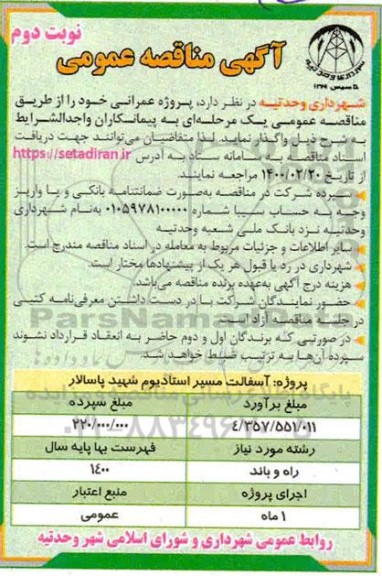 نوبت دوم
آگهی مناقصه عمومی
تاسیس ۱۳۶۹
شهرداری وحدتیه در نظر دارد، پروژه عمرانی خود را از طریق
مناقصه عمومی یک مرحله‌ای به پیمانکاران واجدالشرایط
به شرح ذیل واگذار نماید. لذا متقاضیان می‌توانند جهت دریافت
اسناد مناقصه به سامانه ستاد به آدرس https://setadiran.ir
از تاریخ ۱۴۰۰/۰۲/۲۰ مراجعه نمایند.
سپرده شرکت در مناقصه به‌صورت ضمانتنامه بانکی و یا واریز
وجه به حساب سیبا شماره ۰۱۰۵۹۷۸۱۰۰۰۰۰ به‌نام شهرداری
وحدتیه نزد بانک ملی شعبه وحدتیه
سایر اطلاعات و جزئیات مربوط به معامله در اسناد مناقصه مندرج است.
شهرداری در رد یا قبول هر یک از پیشنهادها مختار است.
هزینه درج آگهی به‌عهده برنده مناقصه می‌باشد.
حضور نمایندگان شرکت با در دست داشتن معرفی‌نامه کتبی
در جلسه مناقصه آزاد است
در صورتی که برندگان اول و دوم حاضر به انعقاد قرارداد نشوند
سپرده آن‌ها به ترتیب ضبط خواهد شد.
پروژه: آسفالت مسیر استادیوم شهید پاسالار
مبلغ برآورد
مبلغ سپرده
۴/۳۵۷/۵۵۱/۰۱۱
۲۲۰/۰۰۰/۰۰۰
رشته مورد نیاز
فهرست بها پایه سال
راه و باند
۱۴۰۰
اجرای پروژه
منبع اعتبار
۱ ماه
عمومی
روابط عمومی شهرداری و شورای اسلامی شهر وحدتیه